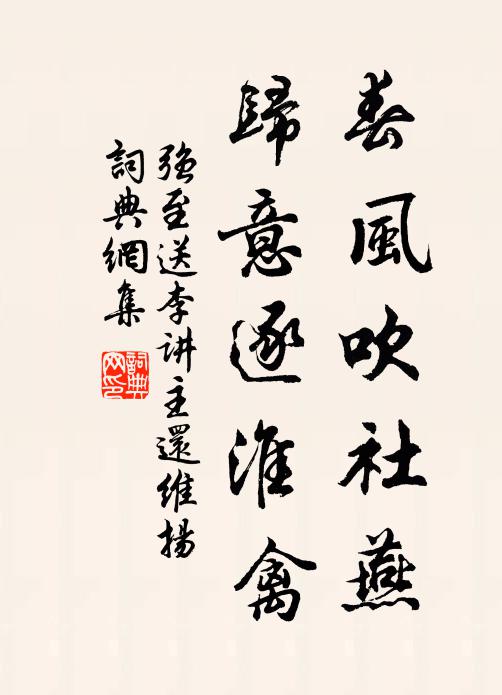 春風吹社燕
歸意逐淮禽
強至送李讲主還維揚
詞典網集
詞典网印